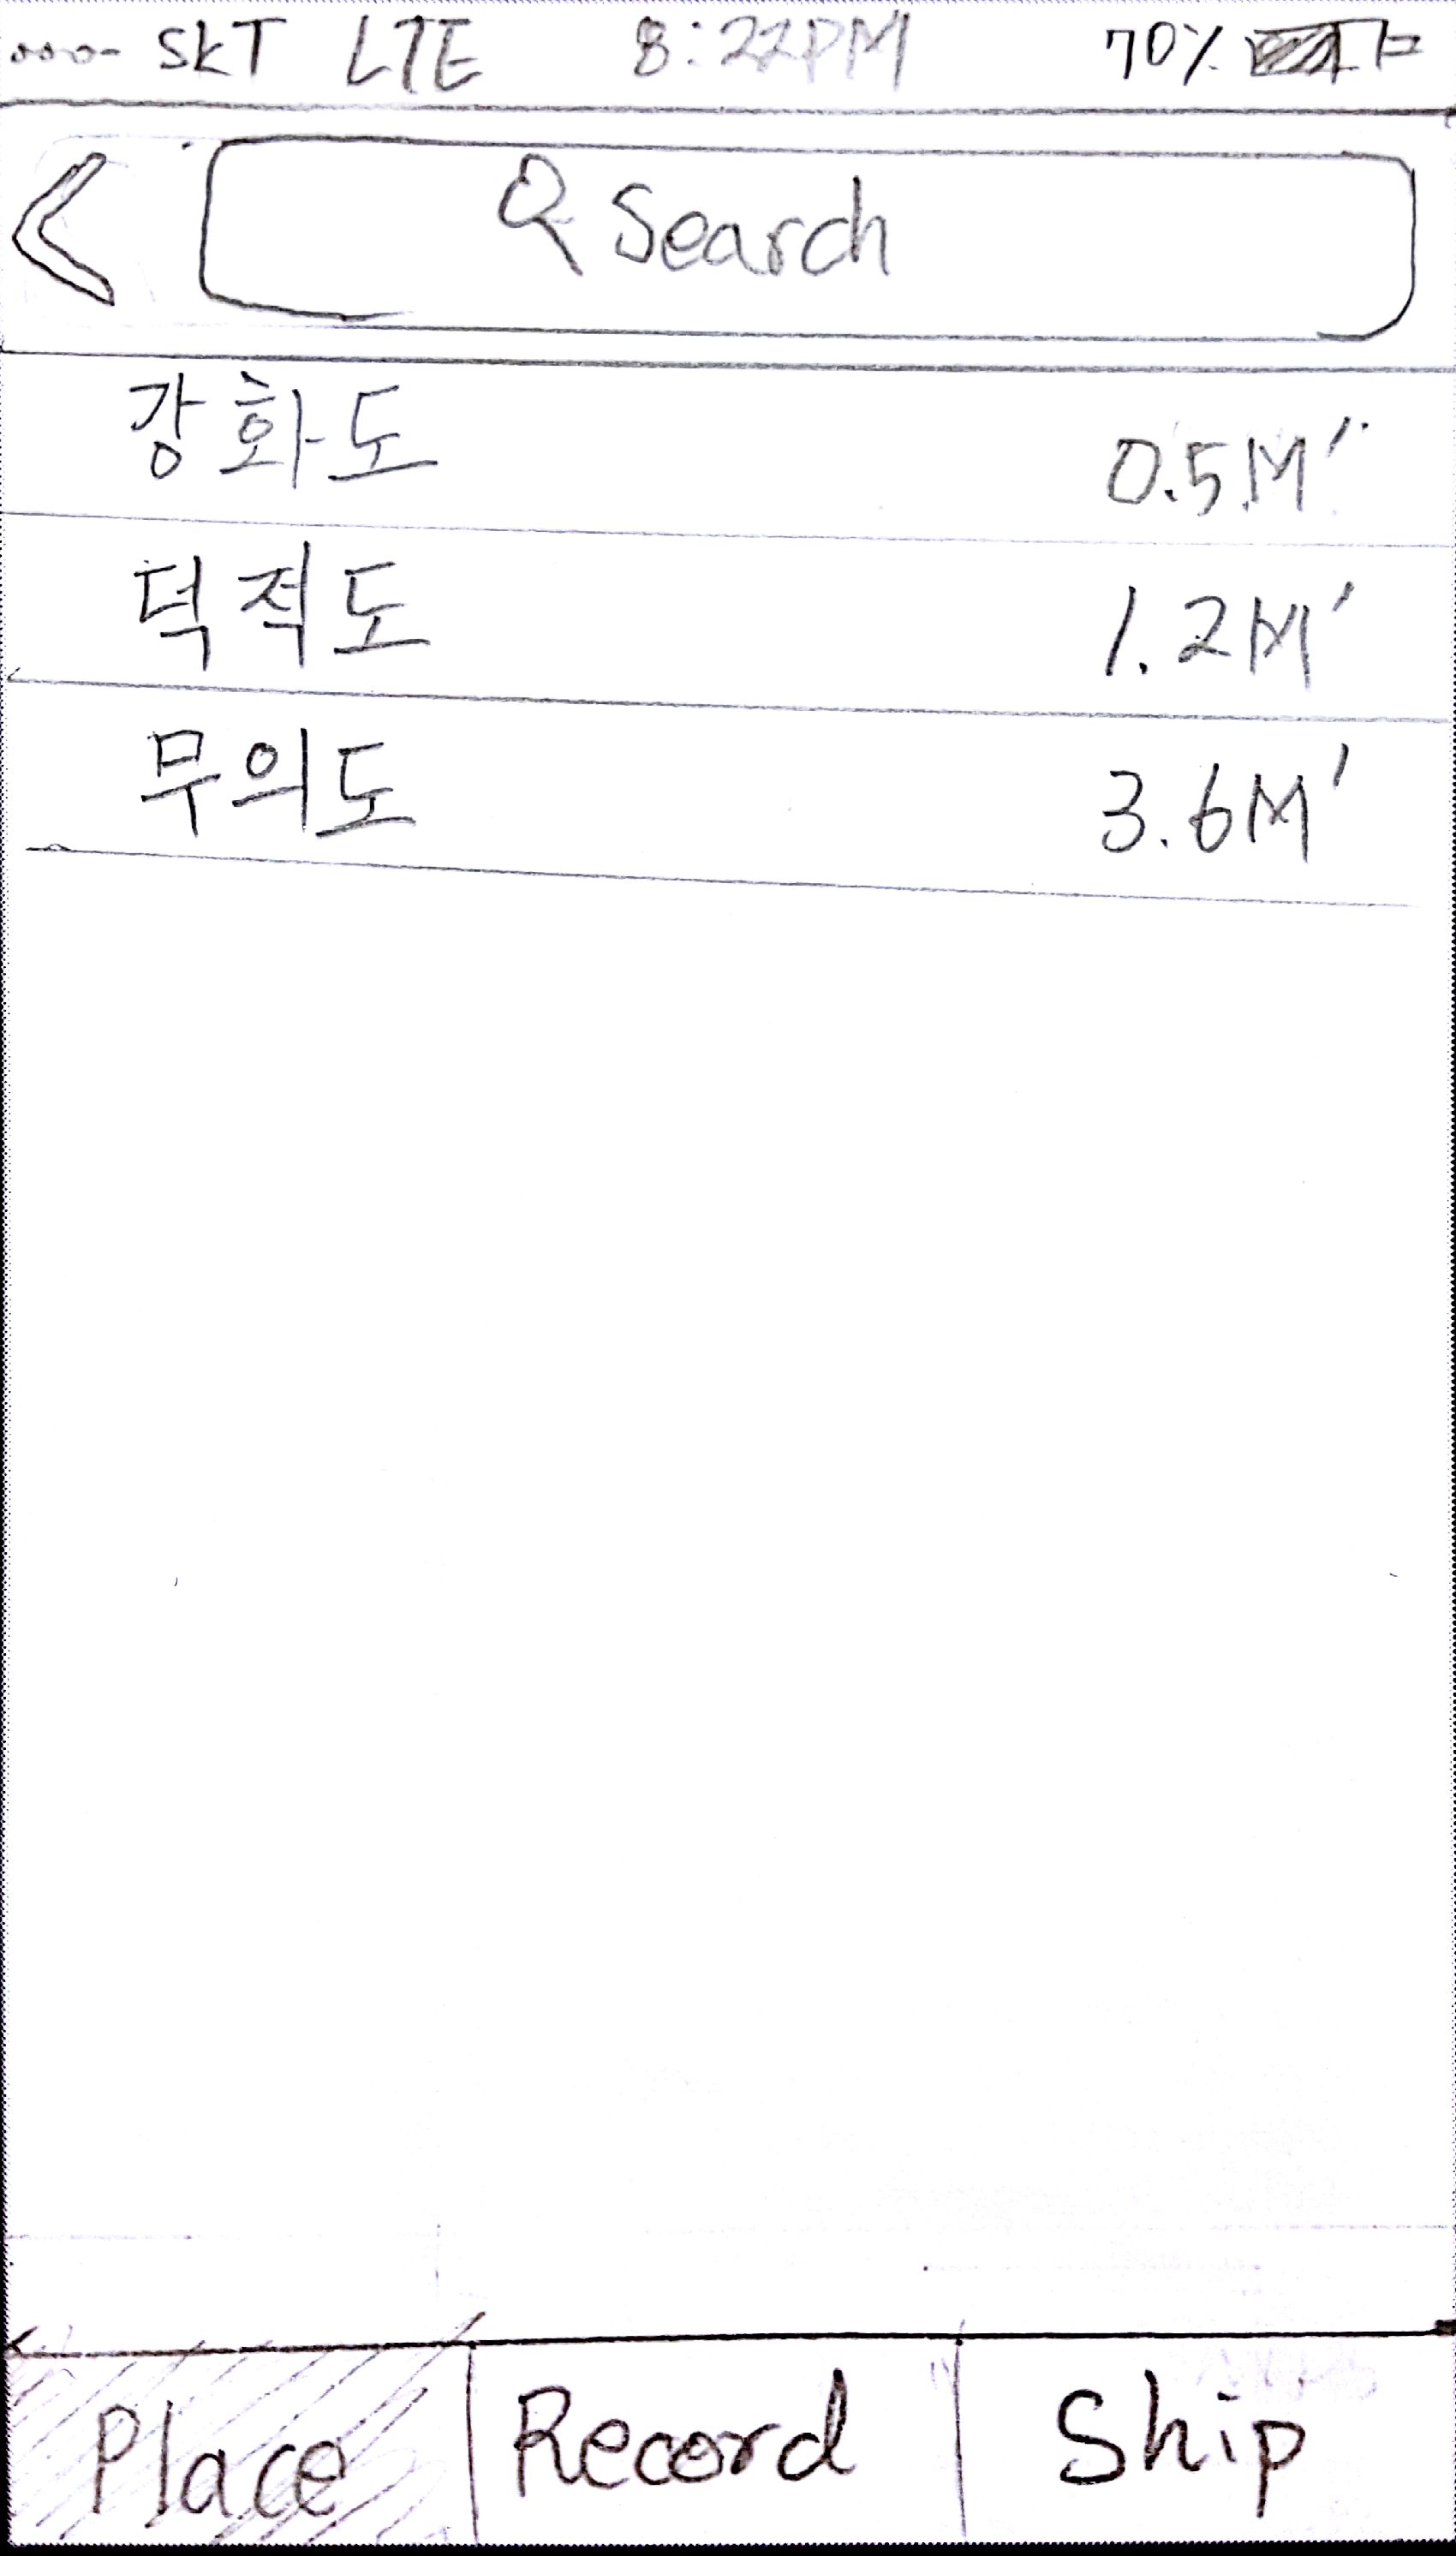 SKT LTE 8:22PM 70%
Search
강화도 0.5M′
덕적도 1.2M′
무의도 3.6M′
Place Record Ship